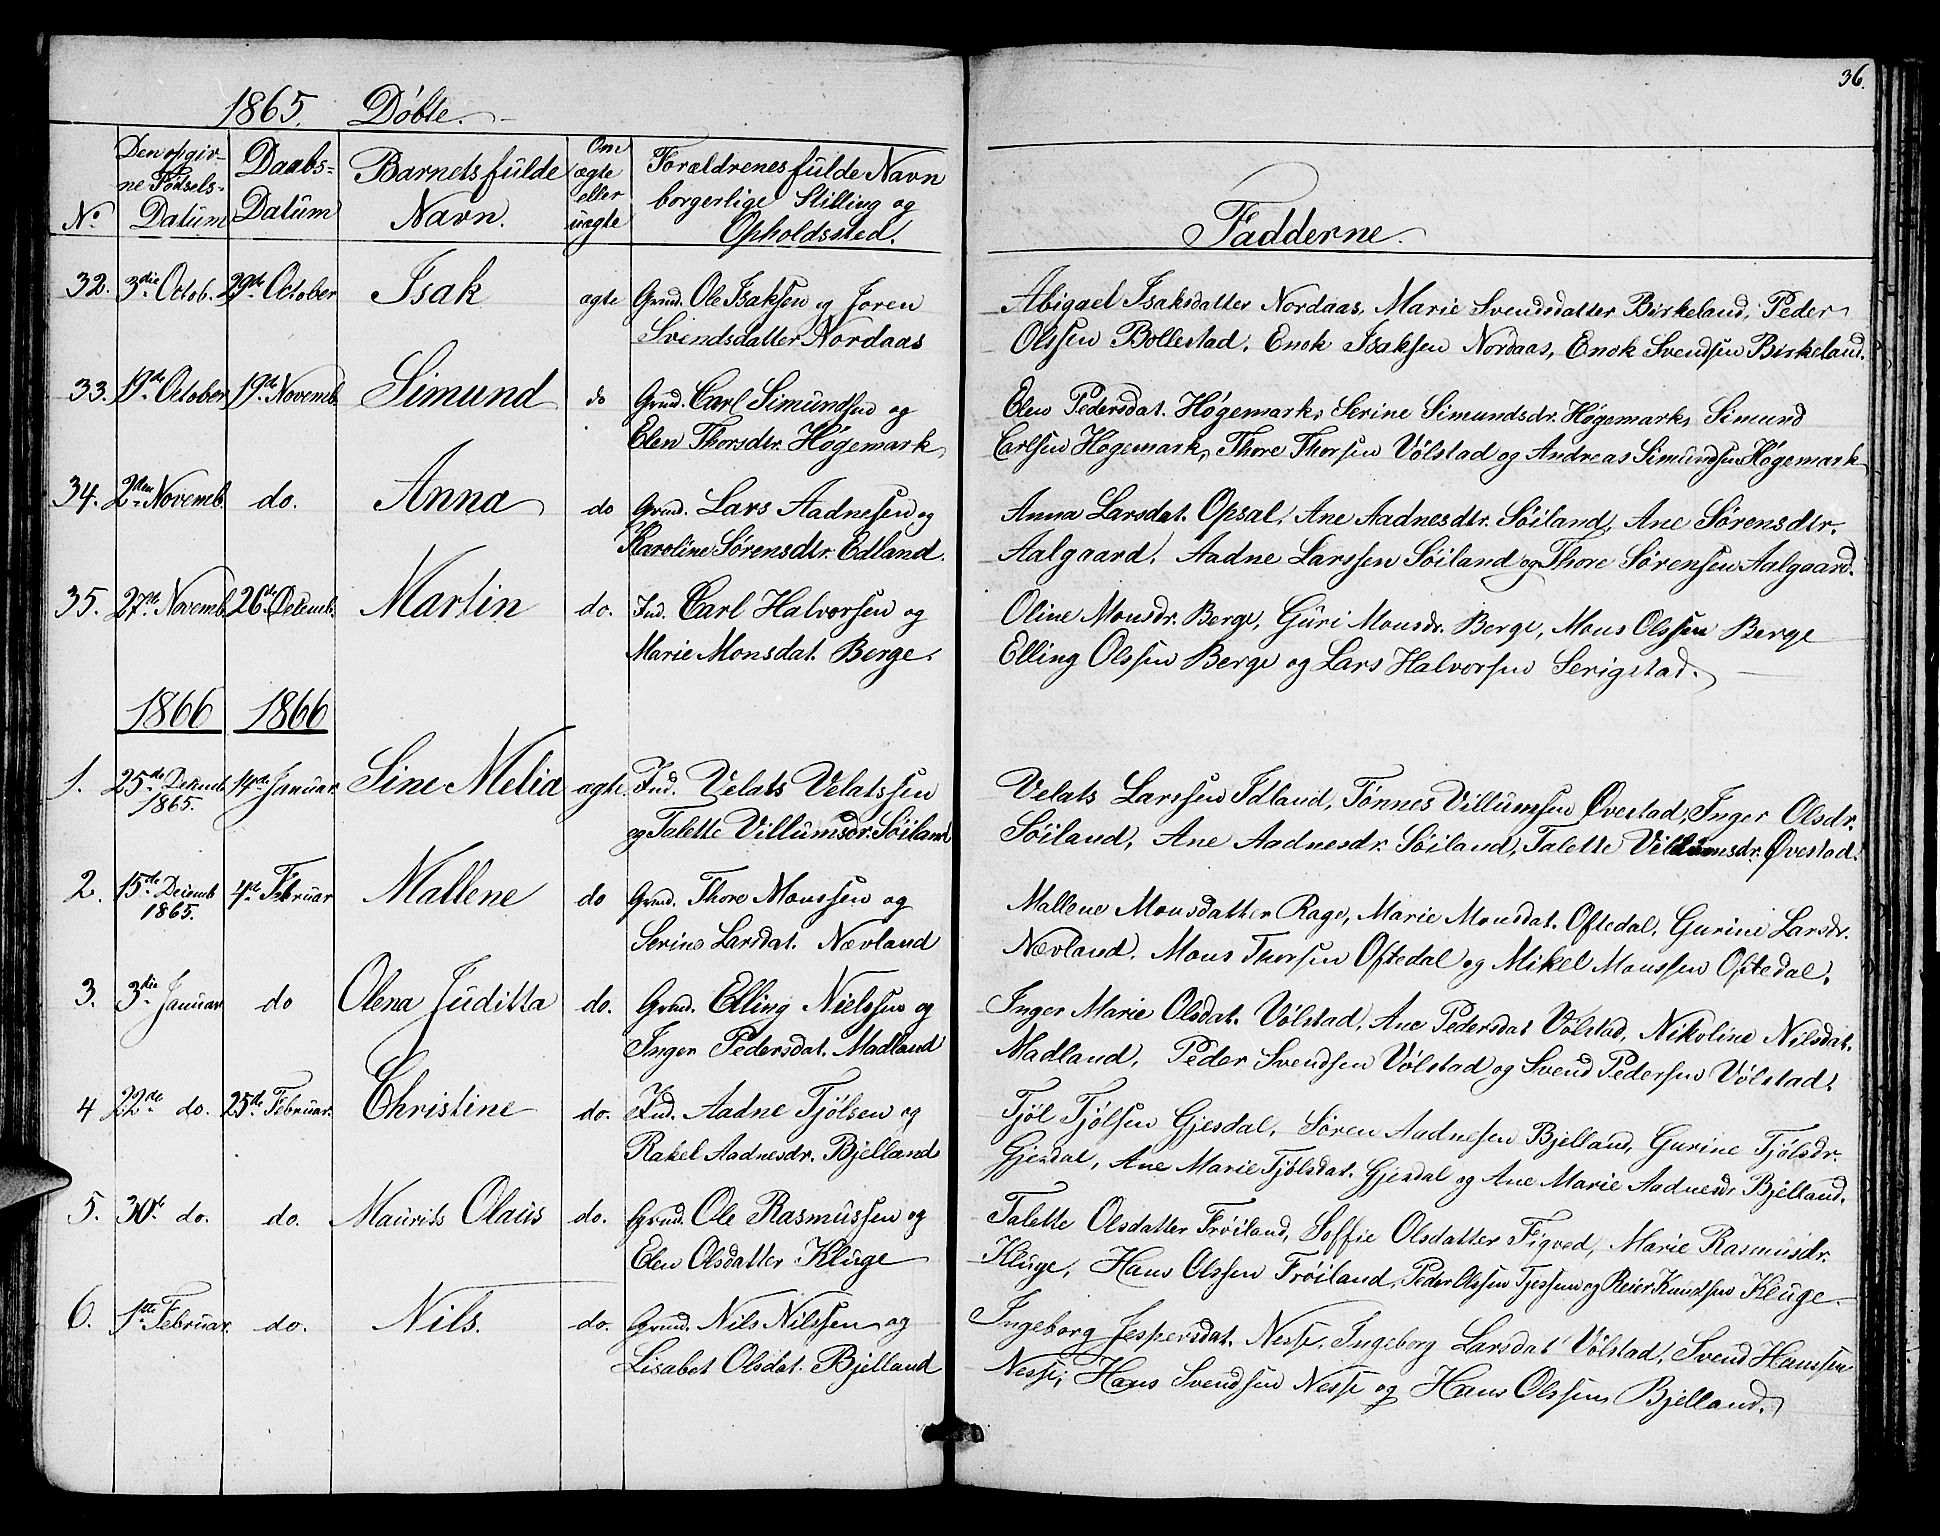 36.
1865. Döbte.
No
Den opgivne Fødsels-Datum
Daabs-Datum
Barnets fulde Navn.
Om ægte eller uægte
Forældrenes fulde Navn borgerlige Stilling og Opholdssted.
Fadderne.
32. 3die Octob. 29de October Isak ægte Grmd. Ole Isaksen og Joren
Svendsdatter Nordaas
Abigael Isaksdatter Nordaas, Marie Svendsdatter Birkeland, Peder
Olssen Bollestad, Enok Isaksen Nordaas, Enok Svendsen Birkeland.
33. 19de October 19de Novemb. Simund do Grmd. Carl Simundsen og
Elen Thorsdtr. Høgemark
Elen Pedersdat. Høgemark, Serine Simundsdr. Høgemark, Simund
Carlsen Høgemark, Thore Thorsen Vølstad og Andreas Simundsen Høgemark
34. 2den Novemb. do. Anna do Grmd. Lars Aadnesen og
Karoline Sørensdtr. Edland.
Anna Larsdat. Opsal, Ane Aadnesdtr. Søiland, Ane Sørensdtr.
Aalgaard, Aadne Larssen Søiland og Thore Sørensen Aalgaard.
35. 27de Novemb. 26de Decemb. Martin do. Ind. Carl Halvorsen og
Marie Monsdat. Berge.
Oline Monsdr. Berge, Guri Monsdr. Berge, Mons Olssen Berge
Elling Olssen Berge og Lars Halvorsen Serigstad.
1866 1866
1. 25de Decemb. 1865. 14de Januar Sine Melia ægte Ind. Velats Velatssen
og Talette Villumsdr. Søiland
Velats Larssen Idland, Tønnes Villumsen Øvestad, Inger Olsdr.
Søiland, Ane Aadnesdr. Søiland, Talette Villumsdr. Øvestad.
2. 15de Decemb 1865. 4de Februar Mallene do Grmd. Thore Monssen og
Serine Larsdat. Nævland
Mallene Monsdatter Rage, Marie Monsdat. Oftedal, Gurine Larsdr.
Nævland, Mons Thorsen Oftedal og Mikel Monssen Oftedal.
3. 3die Januar do Olena Juditta do. Grmd. Elling Nielssen og
Inger Pedersdat. Madland
Inger Marie Olsdat. Vølstad, Ane Pedersdat Vølstad, Nikoline Nilsdat.
Madland, Peder Svendsen Vølstad og Svend Pedersen Vølstad.
4 22de do. 25de Februar. Christine do. Ind. Aadne Tjølsen og
Rakel Aadnesdr. Bjelland
Tjøl Tjølsen Gjesdal, Søren Aadnesen Bjelland, Gurine Tjølsdr.
Gjesdal, Ane Marie Tjølsdat. Gjesdal og Ane Marie Aadnesdr Bjelland.
5. 30te do. do. Maurits Olaus do. Grmd. Ole Rasmussen og
Elen Olsdatter Kluge
Talette Olsdatter Frøiland, Soffie Olsdatter Figved, Marie Rasmusdr.
Kluge, Hans Olssen Frøiland, Peder Olssen Tjessem og Reier Knudsen Kluge.
6. 1ste Februar. do. Nils. do. Grmd. Nils Nilssen og
Lisabet Olsdat. Bjelland
Ingeborg Jespersdat. Nesse, Ingeborg Larsdat Vølstad, Svend Hanssen
Nesse, Hans Svendsen Nesse og Hans Olssen Bjelland.